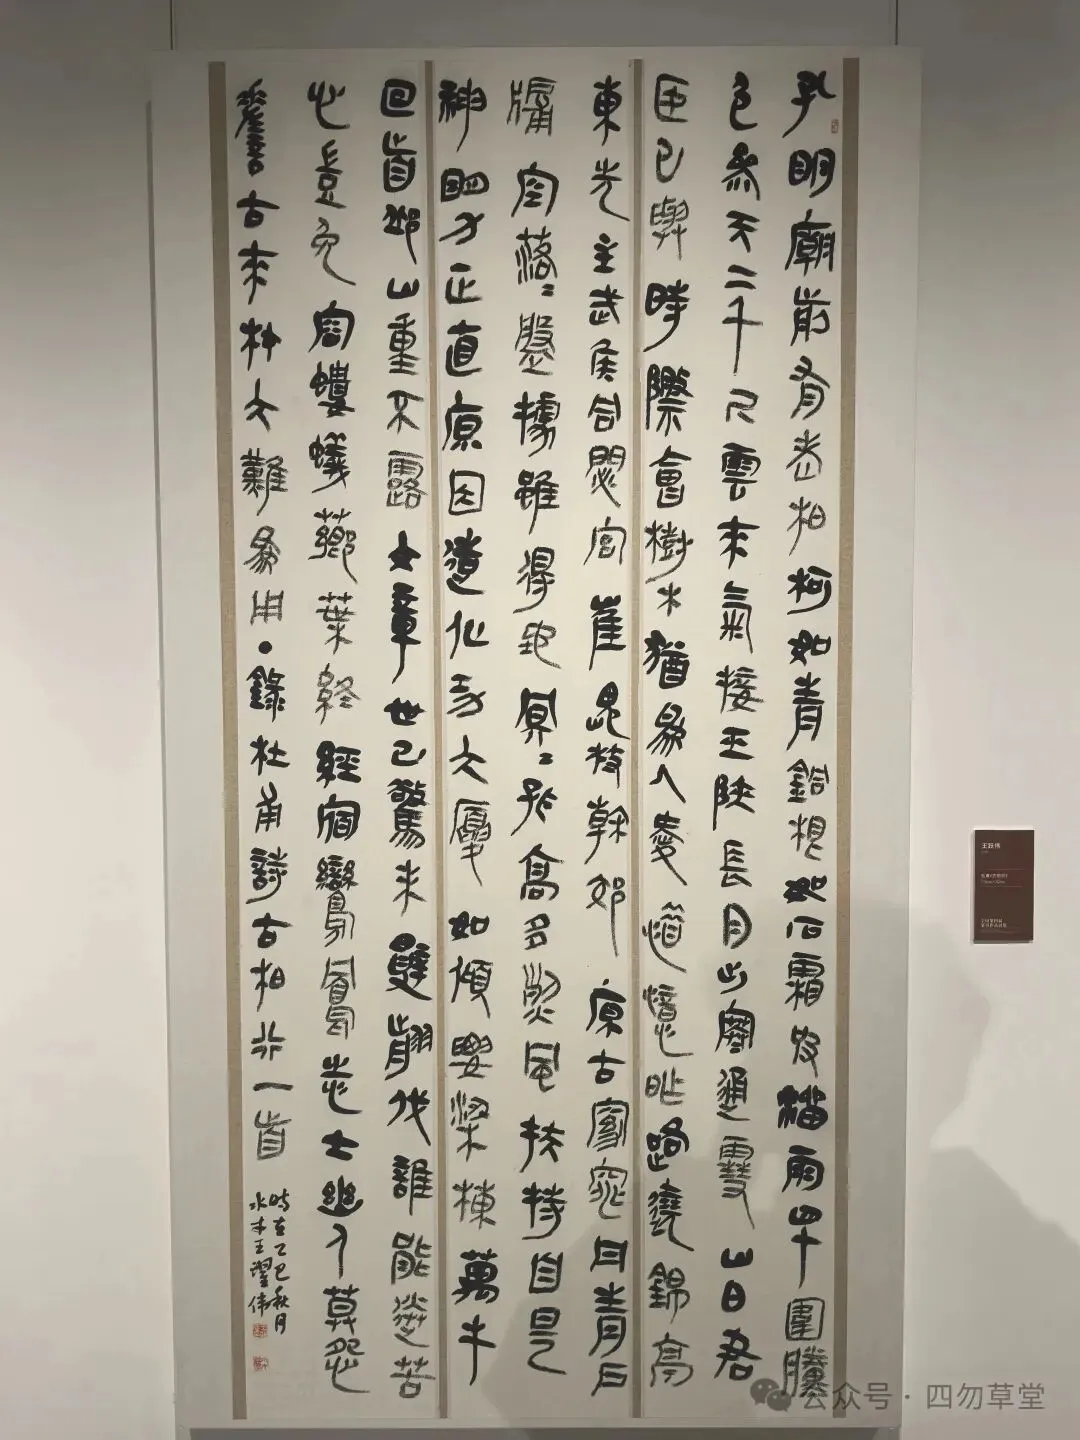 孔明廟前有老柏柯如青銅根如石霜皮溜雨四十圍黱
色參天二千尺雲來氣接巫陝長月出寒通雪山白君
臣已與時際會樹木猶為人愛惜憶昨路繞錦亭
東先主武侯同閟宮崔嵬枝幹郊原古窈窕丹青戶
牖空落〻盤據雖得地冥〻孤高多烈風扶持自是
神明力正直原因造化功大廈如傾要梁棟萬牛
回首邱山重不露文章世已驚未辭翦伐誰能送苦
心豈免容螻蟻薌葉終經宿鸞鳳志士幽人莫怨
嗟古來材大難為用·錄杜甫詩古柏行一首
時在乙巳秋月
水木王躍偉
王跃伟
公众号·四勿草堂